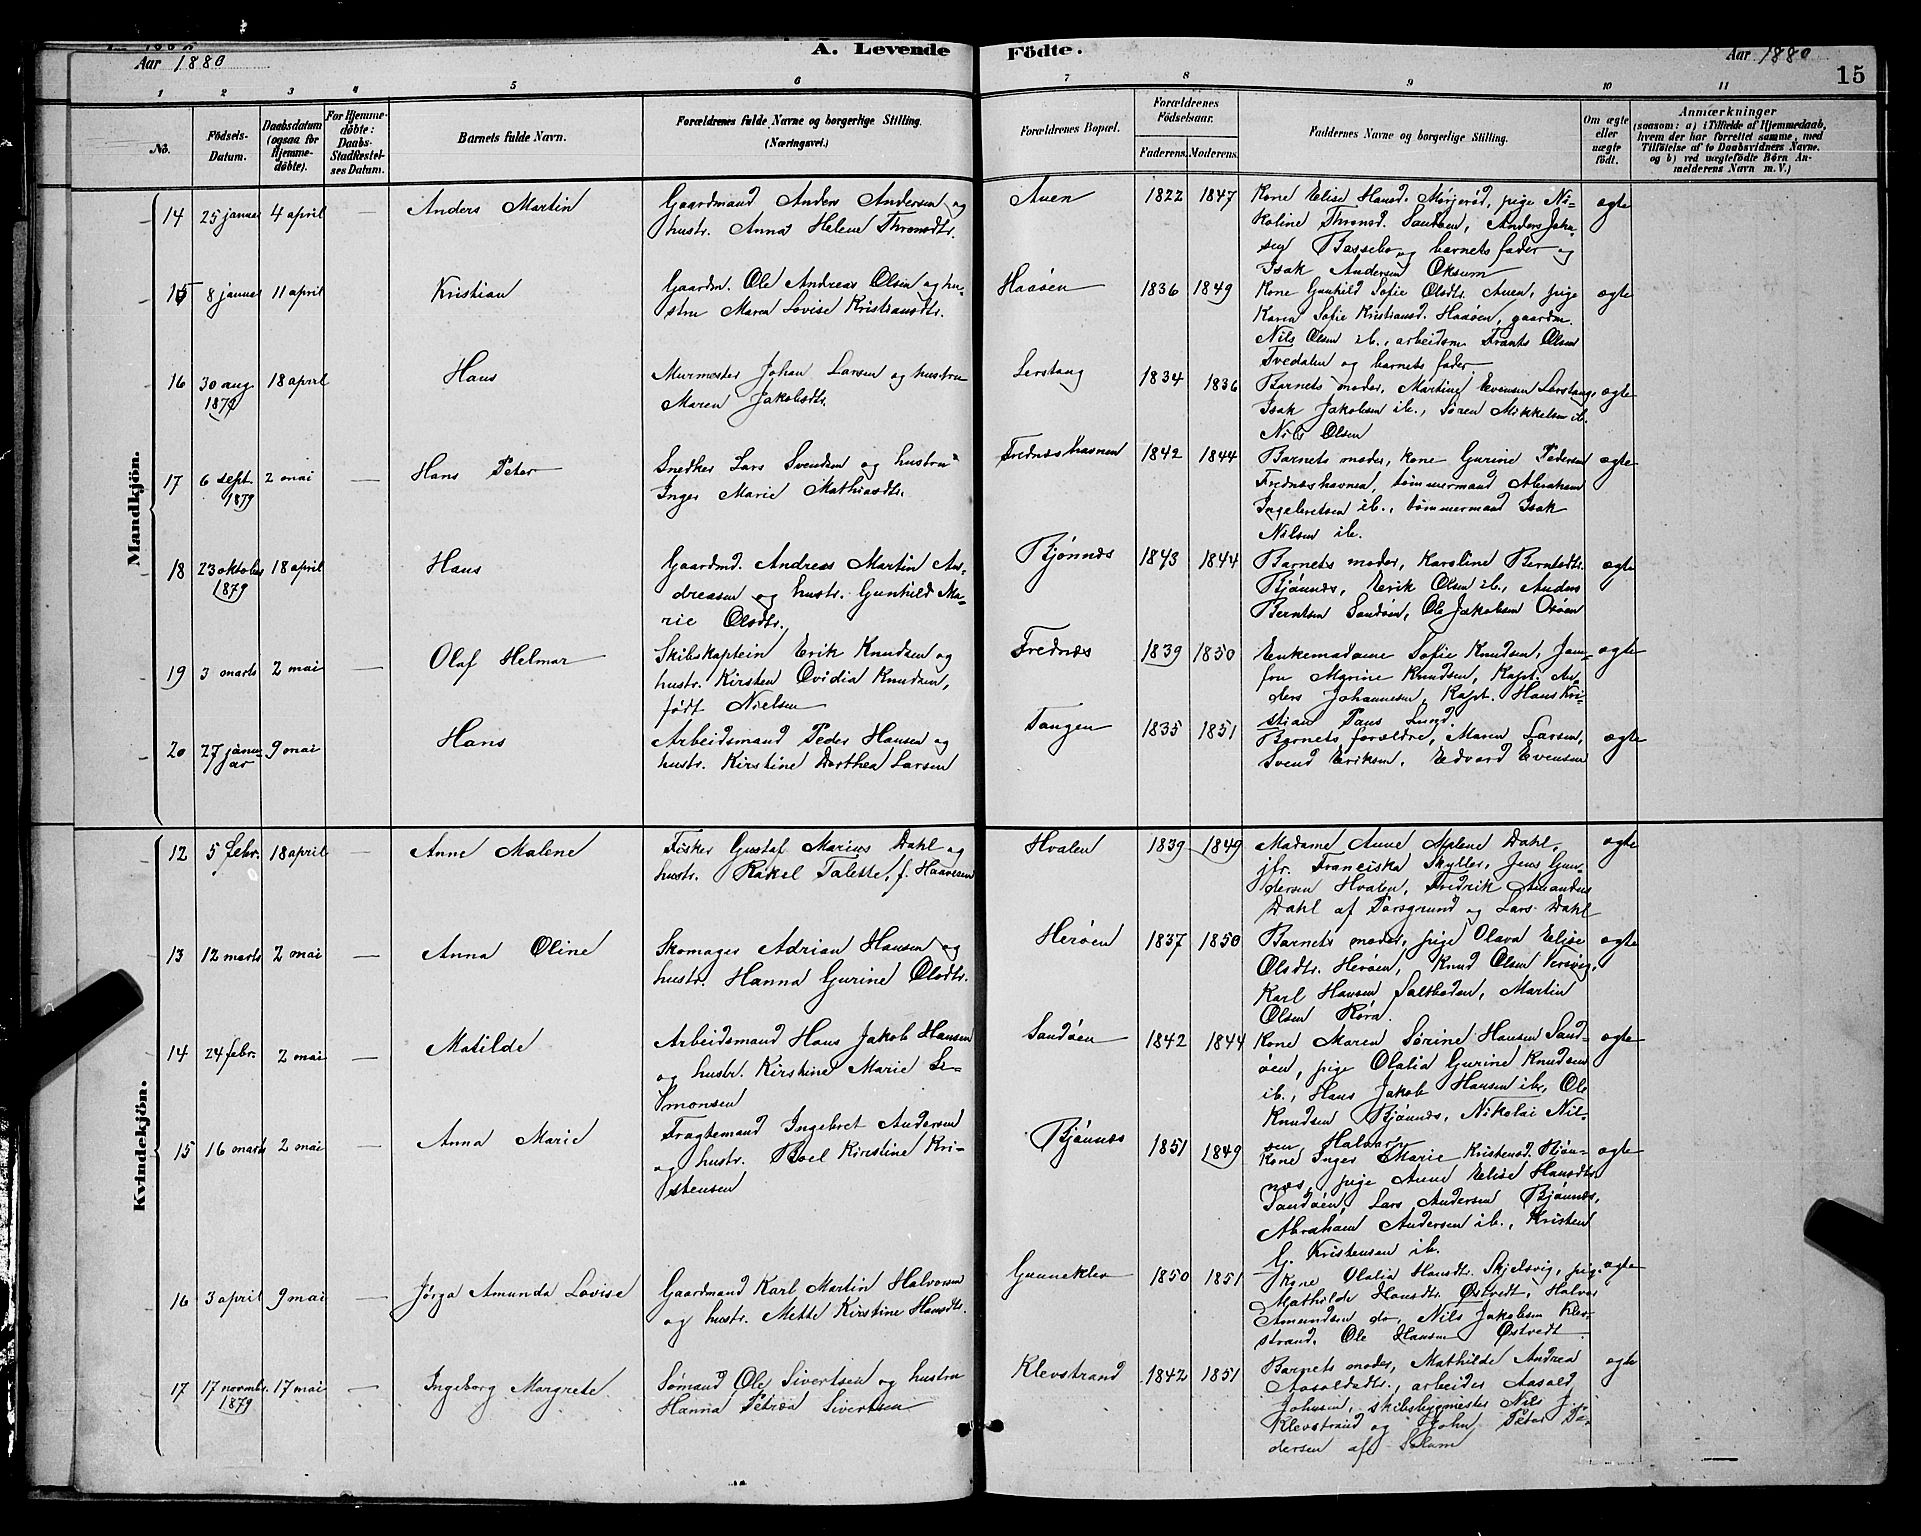 A. Levende Födte.
Aar 1880
Aar 1880
15
1 2 3 4 5 6 7 8 9 10 11
No.
Födsels-
Datum.
Daabsdatum
(ogsaa for
Hjemme-
döbte).
For Hjemme-
döbte:
Daabs-
Stadfæstel-
ses Datum.
Barnets fulde Navn.
Forældrenes fulde Navne og borgerlige Stilling.
(Næringsvei.)
Forældrenes Bopæl.
Forældrenes
Födselsaar.
Faderens. Moderens.
Faddernes Navne og borgerlige Stilling.
Om ægte
eller
uægte
födt.
Anmærkninger
(saasom: a) i Tilfælde af Hjemmedaab,
hvem der har forrettet samme, med
Tilföielse af to Daabsvidners Navne.
og b) ved uægtefödte Börn An-
melderens Navn m. V.)
Mandkjön.
14 25 januar 4 april — Anders Martin
Gaardmand Anders Andersen og
hustr. Anna Helene Thronsdtr.
Auen 1822 1847
Kone Elise Hansd. Mörjeröd, pige Ni-
koline Thronsd. Sandöen, Anders Joha-
sen Bassebo og barnets fader og
Isak Andersen Oksum
ægte
15 8 januar 11 april — Kristian
Gaardm. Ole Andreas Olsen og hu-
stru Maren Lovise Kristiansdtr.
Haaöen 1836 1849
Kone Gunhild Sofie Olsdtr. Auen, pige
Karen Sofie Kristiansd. Haaöen, gaardm.
Nils Olsen ib., arbeidsm. Frants Olsen
Tvedalen og barnets fader
ægte
16 30 aug. 18 april — Hans
1879
Murmester Johan Larsen og hustru
Maren Jakobsdtr.
Lerstang 1834 1836
Barnets moder, Martine Evensen Lerstang,
Isak Jakobsen ib., Sören Mikkelsen ib.
Nils Olsen
ægte
17 6 sept. 2 mai — Hans Peter
1879
Snedker Lars Svendsen og hustru
Inger Marie Mathiasdtr.
Frednæshavnen 1842 1844
Barnets moder, kone Gurine Pedersen
Frednæshavnen, tömmermand Abraham
Ingebretsen ib., tömmermand Isak
Nilsen ib.
ægte
18 23 oktober 18 april — Hans
1879
Gaardmd. Andreas Martin An-
dreasen og hustr. Gunhild Ma-
rie Olsdtr.
Bjönnæs 1843 1844
Barnets moder, Karoline Berntsdtr.
Bjönnæs, Erik Olsen ib., Anders
Berntsen Sandöen, Ole Jakobsen Osöen
ægte
19 3 marts 2 mai — Olaf Helmar
Skibskaptein Erik Knudsen og
hustr. Kirsten Ovidia Knudsen,
födt Nielsen
Frednæs 1839 1850
Enkemadame Sofie Knudsen, Jom-
fru Marine Knudsen, Kapt. An-
ders Johannesen, Kapt. Hans Kri-
stian Paus Lund.
ægte
20 27 janu- 9 mai — Hans
ar
Arbeidsmand Peder Hansen og
hustr. Kirstine Dorthea Larsen
Tangen 1835 1851
Barnets forældre, Maren Larsen,
Svend Eriksen, Edvard Evensen
ægte
Kvindekjön.
12 5 febr. 18 april — Anne Malene
Fisker Gustaf Marius Dahl og
hustr. Rakel Talette, f. Haavesen
Hvalen 1839 1849
Madame Anne Malene Dahl,
jfr. Franciska Skyller, Jens Gun-
dersen Hvalen, Fredrik Amandus
Dahl af Porsgrund og Lars Dahl
ægte
13 12 marts 2 mai — Anna Oline
Skomager Adrian Hansen og
hustr. Hanna Gurine Olsdtr.
Heröen 1837 1850
Barnets moder, pige Olava Elise
Olsdtr. Heröen, Knud Olsen Versvig,
Karl Hansen Saltboden, Martin
Olsen Röra.
ægte
14 24 febr. 2 mai — Matilde
Arbeidsmand Hans Jakob Hansen
og hustr. Kirstine Marie Si-
monsen
Sandöen 1842 1844
Kone Maren Sörine Hansen Sand-
öen, pige Olalia Gurine Knudsen
ib., Hans Jakob Hansen ib., Ole
Knudsen Bjönnæs, Nikolai Nil-
sen
ægte
15 16 marts 2 mai — Anna Marie
Fragtemand Ingebret Andersen
og hustr. Boel Kirstine Kri-
stensen
Bjönnæs 1851 1849
Kone Inger Marie Kristensd. Bjön-
næs, pige Anne Elise Hansdtr.
Sandöen, Lars Andersen Bjönnæs,
Abraham Andersen ib., Kristen
G. Kristensen ib.
ægte
16 3 april 9 mai — Jörga Amunda Lovise
Gaardmand Karl Martin Halvorsen
og hustr. Mette Kirstine Hansdtr.
Gunneklev 1850 1851
Kone Olalia Hansdtr. Skjelsvig, pige
Mathilde Hansdtr. Östvedt, Halvor
Amundsen do, Nils Jakobsen Klev-
strand. Ole Hansen Östvedt
ægte
17 17 novmbr. 17 mai — Ingeborg Margrete
1879
Sömand Ole Sivertsen og hustru
Hanna Petrea Sivertsen
Klevstrand 1842 1851
Barnets moder, Mathilde Andrea
Aasoldsdtr., arbeider Aasold
Johnsen, skibsbygmester Nils J.
Klevstrand og John Peter Pe-
dersen af Solum
ægte